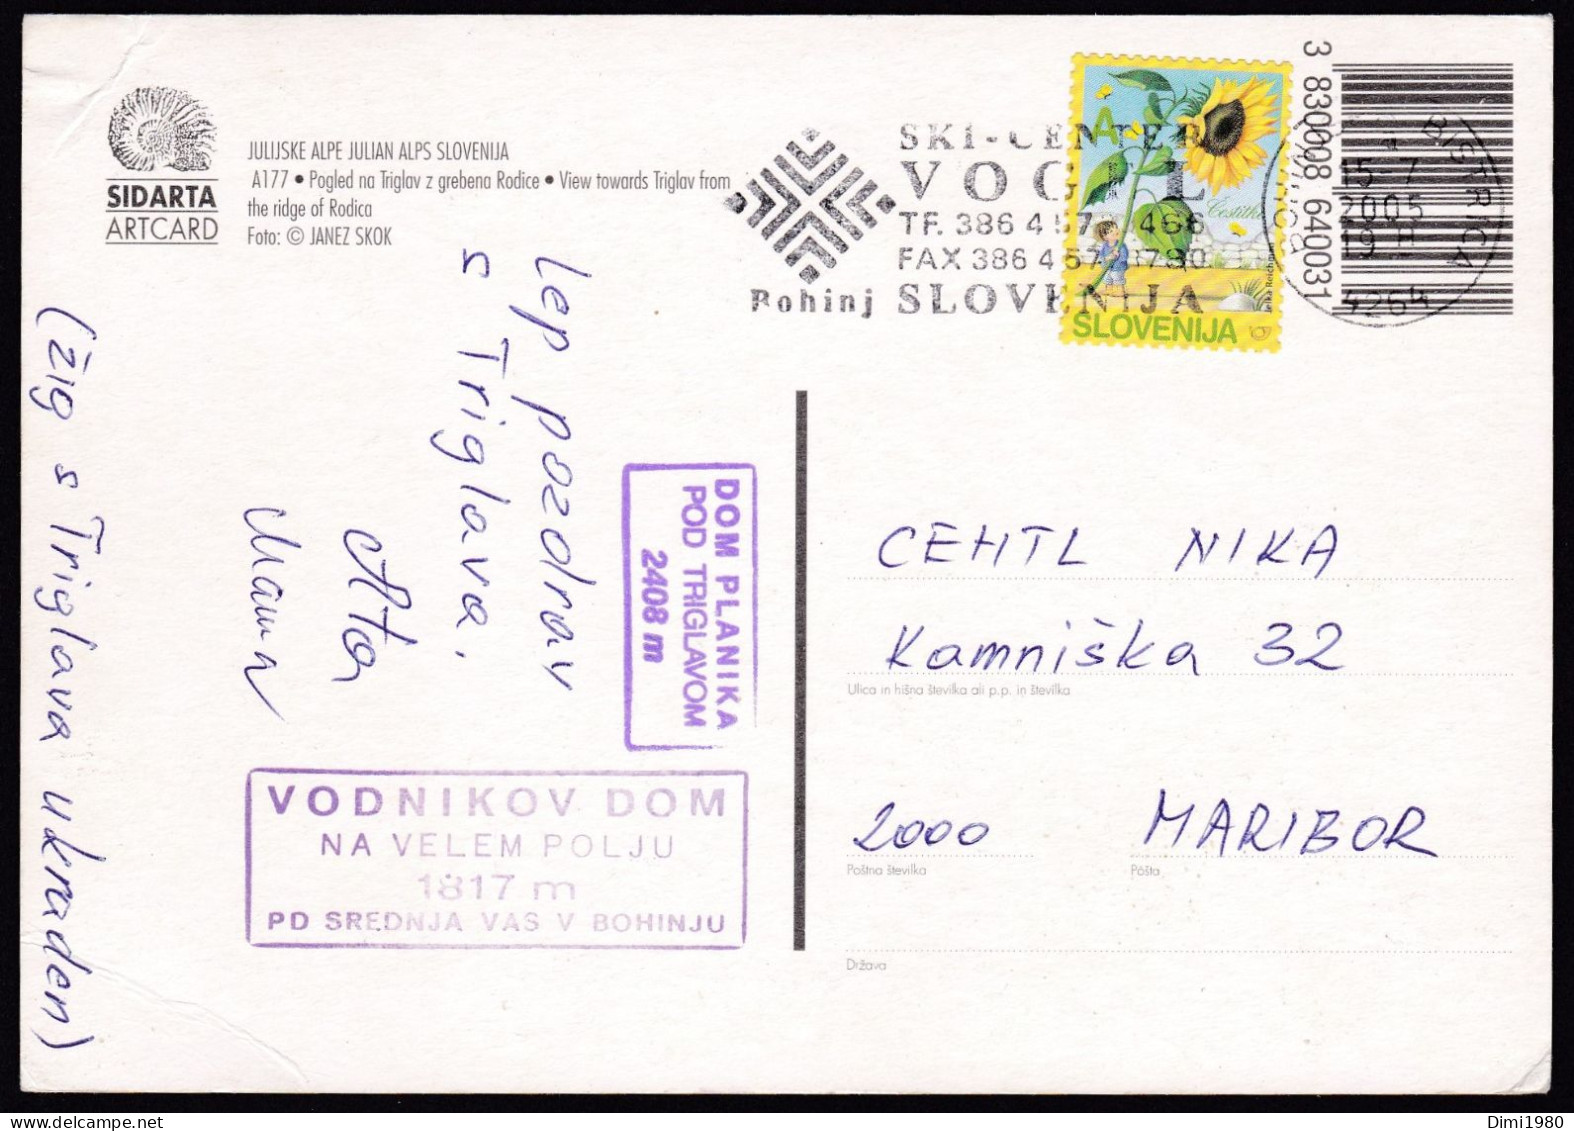 SIDARTA
ARTCARD
JULIJSKE ALPE JULIAN ALPS SLOVENIJA
A177 • Pogled na Triglav z grebena Rodice • View towards Triglav from
the ridge of Rodica
Foto: © JANEZ SKOK
Bohinj
SKI-CENTER
VOGEL
TF. 386 4 57 466
FAX 386 4 57
SLOVENIJA
A
Čestitke
SLOVENIJA
3 830008 640031
BISTRICA
15-7
2005
19 H
4264
Lep pozdrav
s Triglava.
Ata
Mama
(žig s Triglava ukraden)
DOM PLANIKA
POD TRIGLAVOM
2408 m
VODNIKOV DOM
NA VELEM POLJU
1817 m
PD SREDNJA VAS V BOHINJU
CEHTL NIKA
Kamniška 32
Ulica in hišna številka ali p.p. in številka
2000 MARIBOR
Poštna številka Pošta
Država
Dimi1980